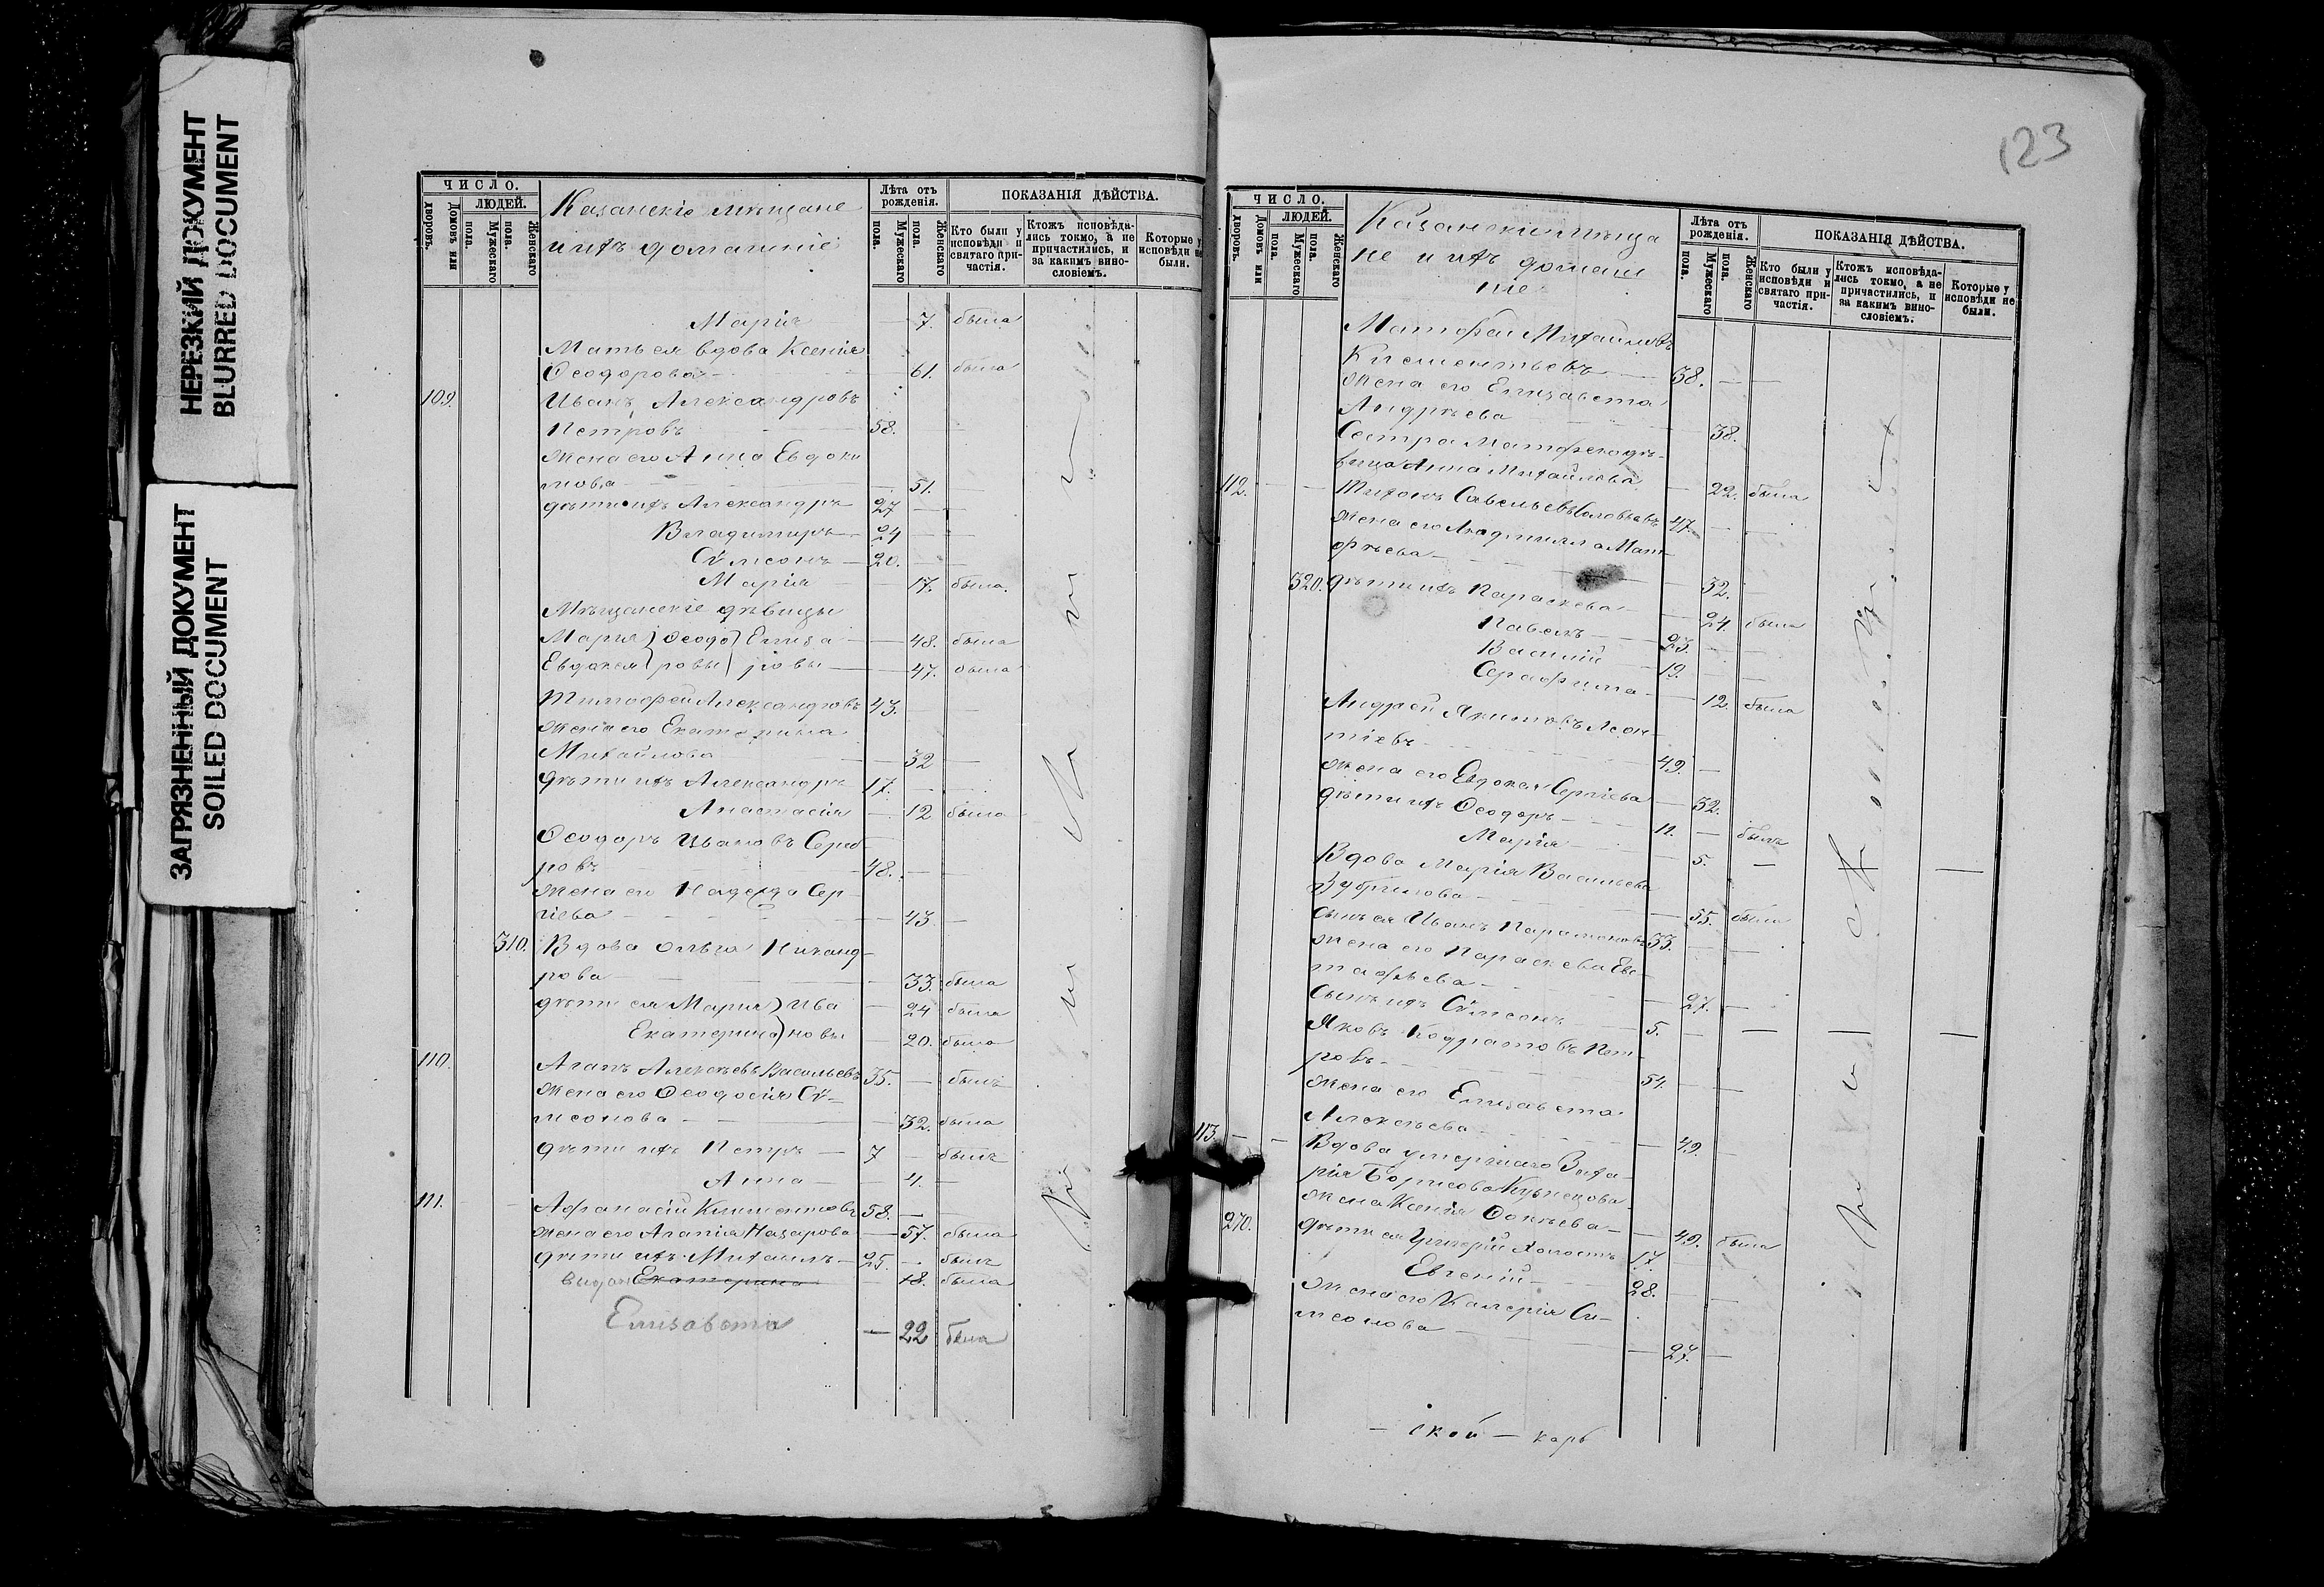 НЕРЕЗКИЙ ДОКУМЕНТ
BLURRED DOCUMENT
ЗАГРЯЗНЕННЫЙ ДОКУМЕНТ
SOILED DOCUMENT
ЧИСЛО.
ЛЮДЕЙ.
Домовъ или дворовъ.
Мужескаго пола.
Женскаго пола.
Казанскіе мѣщане
и ихъ домашніе
Лѣта отъ рожденія.
Мужескаго пола.
Женскаго пола.
ПОКАЗАНІЯ ДѢЙСТВА.
Кто были у исповѣди и святаго причастія.
Ктожъ исповѣдались токмо, а не причастились, и за какимъ винословіемъ.
Которые у исповѣди не были.
Марія 7. была
Мать ея вдова Ксенія
Ѳеодорова 61. была
109. Иванъ Александровъ
Петровъ 58.
Жена его Анна Евдоки
мова 51.
дѣти ихъ Александръ 27
Владимиръ 24
Сѵмеонъ 20.
Марія 17. была.
Мѣщанскіе дѣвицы
Марія Ѳеодо Елиза 48. была
Евдокия ровы 47. была
Тимофей Александровъ 43.
Жена его Екатерина
Михайлова 32
дѣти ихъ Александръ 17.
Анастасія 12 была
Ѳеодоръ Ивановъ
ровъ 48.
Жена его Надежда Сер
гіева 43
310. Вдова Ольга Никанд
рова 33. была
дѣти ея Мария Ива 24 была
Екатерина новы 20. была
110. Агапъ Алексѣевъ Васильевъ 35. былъ
Жена его Ѳеодосія Сѵ
меонова 32. была
дѣти ихъ Петръ 7 былъ
Анна 4.
111. Афанасій Климентовъ 58.
Жена его Агапія Назарова 57. была
дѣти ихъ Михаилъ 25. былъ
Екатерина 18. была
Елизавета 22 была
123
ЧИСЛО.
ЛЮДЕЙ.
Домовъ или дворовъ.
Мужескаго пола.
Женскаго пола.
Казанскіе мѣща
не и ихъ домаш
ніе
Лѣта отъ рожденія.
Мужескаго пола.
Женскаго пола.
ПОКАЗАНІЯ ДѢЙСТВА.
Кто были у исповѣди и святаго причастія.
Ктожъ исповѣдались токмо, а не причастились, и за какимъ винословіемъ.
Которые у исповѣди не были.
Матфей Михаиловъ
Климентьевъ 38.
Жена его Елизавета
Андреева 38.
Сестра Матфея дѣ
вица Анна Михайлова 22. была
112. Тихонъ Савельевъ Соловьевъ 47.
Жена его Людмилла Мат
фѣева 32.
320. дѣти ихъ Параскева 24. была
Павелъ 23.
Василій 19.
Серафима 12. была
Андрей Акимовъ Леон
тіевъ 49.
Жена его Евдокия Сергіева 52.
дѣти ихъ Ѳеодоръ 11. былъ
Марія 5.
Вдова Марія Васильева
55. была
Сынъ ея Иванъ Парамоновъ 33.
Жена его Параскева Евс
тафьева 27.
Сынъ ихъ Сѵмеонъ 5.
Яковъ Кодратовъ Пет
ровъ 54.
Жена его Елизавета
Алексѣева 49.
113. Вдова умершаго Заха
рія Борисова Кузнецова
жена Ксенія Фокѣева 49. была
270. дѣти ея Григорій холостъ 17.
Евгеній 28.
Жена его Калерія Си
меонова 27.
ской